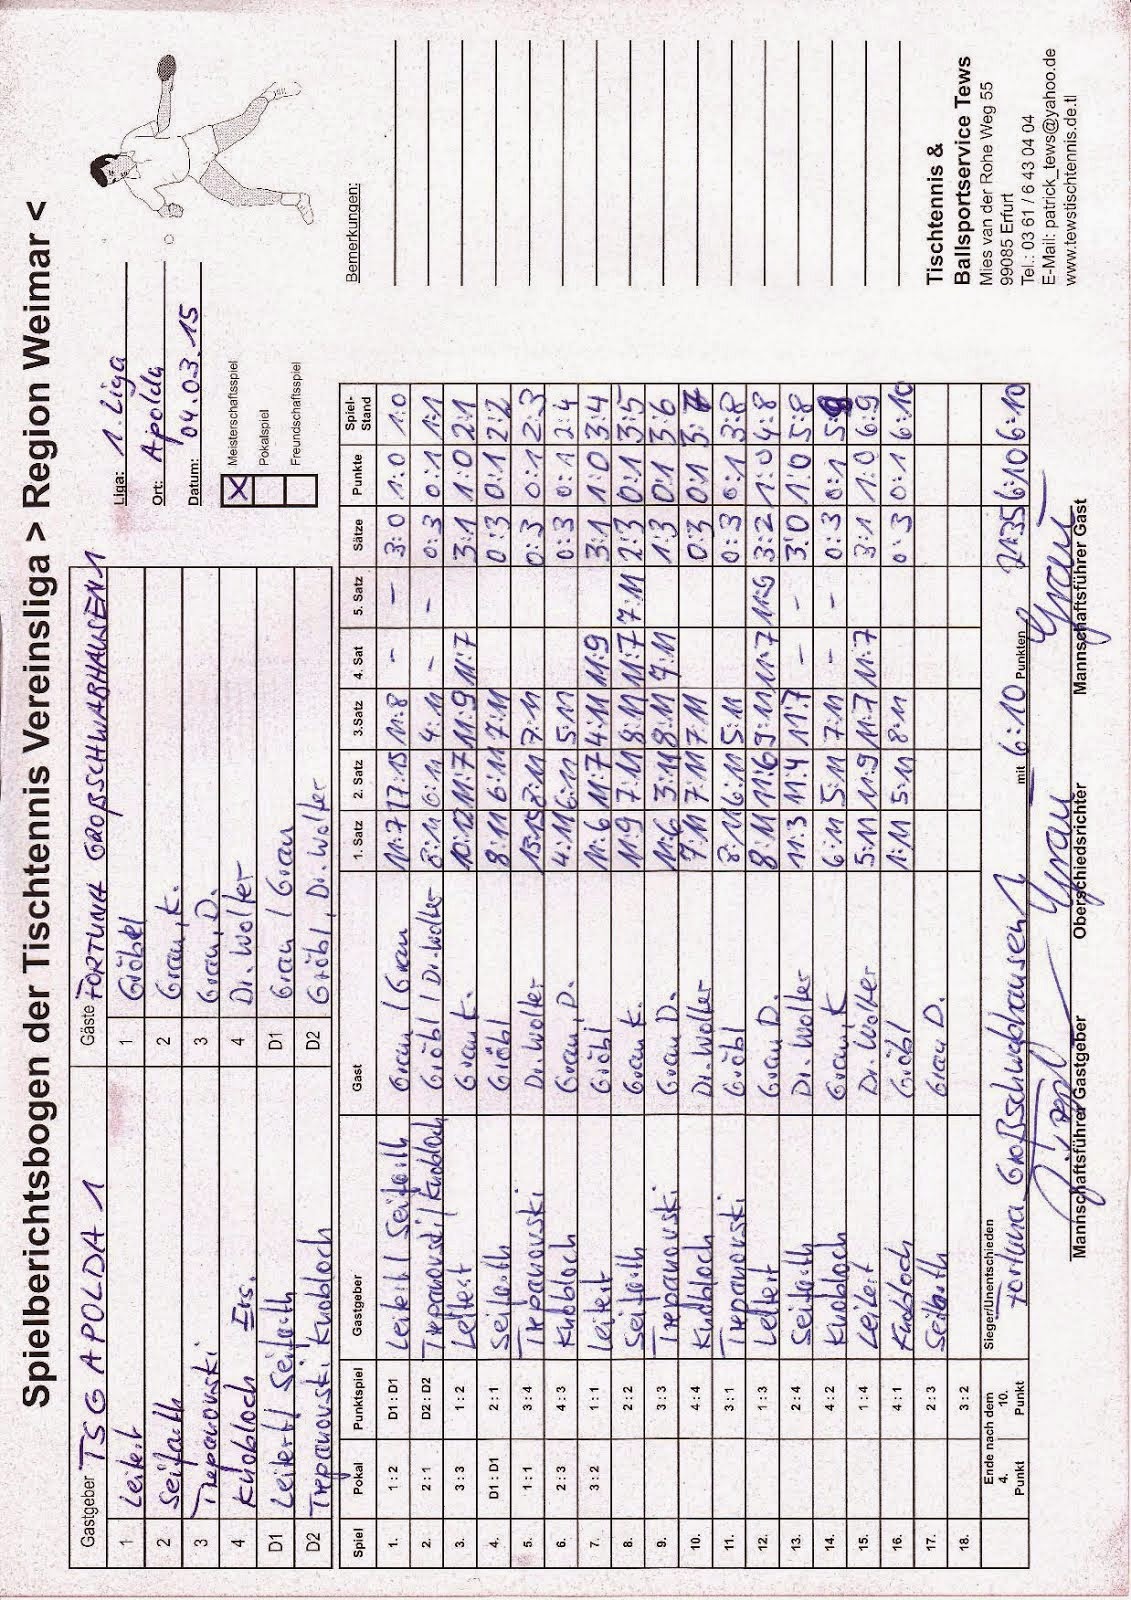 Spielberichtsbogen der Tischtennis Vereinsliga > Region Weimar <
Gastgeber TSG APOLDA 1 Gäste FORTUNA GROßSCHWABHAUSEN 1
1 Leitert 1 Gröbl
2 Seifarth 2 Grau, K.
3 Trepanovski 3 Grau, D.
4 Knobloch Ers. 4 Dr. Wolter
D1 Leitert / Seifarth D1 Grau / Grau
D2 Trepanovski Knobloch D2 Gröbl, Dr. Wolter
Liga: 1. Liga
Ort: Apolda
Datum: 04.03.15
X Meisterschaftsspiel
Pokalspiel
Freundschaftsspiel
Spiel Pokal Punktspiel Gastgeber Gast 1. Satz 2. Satz 3.Satz 4. Sat 5. Satz Sätze Punkte Spiel-Stand
1. 1 : 2 D1 : D1 Leitert / Seifarth Grau / Grau 11:7 17:15 11:8 – – 3:0 1:0 1:0
2. 2 : 1 D2 : D2 Trepanovski / Knobloch Gröbl / Dr. Wolter 8:11 6:11 4:11 – – 0:3 0:1 1:1
3. 3 : 3 1 : 2 Leitert Grau K. 10:12 11:7 11:9 11:7 3:1 1:0 2:1
4. D1 : D1 2 : 1 Seifarth Gröbl 8:11 6:11 7:11 0:3 0:1 2:2
5. 1 : 1 3 : 4 Trepanovski Dr. Wolter 13:15 8:11 7:11 0:3 0:1 2:3
6. 2 : 3 4 : 3 Knobloch Grau, D. 4:11 6:11 5:11 0:3 0:1 2:4
7. 3 : 2 1 : 1 Leitert Gröbl 11:6 11:7 4:11 11:9 3:1 1:0 3:4
8. 2 : 2 Seifarth Grau K. 11:9 7:11 8:11 11:7 7:11 2:3 0:1 3:5
9. 3 : 3 Trepanovski Grau D. 11:6 3:11 8:11 7:11 1:3 0:1 3:6
10. 4 : 4 Knobloch Dr. Wolter 7:11 7:11 7:11 0:3 0:1 3:7
11. 3 : 1 Trepanovski Gröbl 8:11 6:11 5:11 0:3 0:1 3:8
12. 1 : 3 Leitert Grau D. 8:11 11:6 9:11 11:7 11:9 3:2 1:0 4:8
13. 2 : 4 Seifarth Dr. Wolter 11:3 11:4 11:7 – – 3:0 1:0 5:8
14. 4 : 2 Knobloch Grau, K 6:11 5:11 7:11 – – 0:3 0:1 5:9
15. 1 : 4 Leitert Dr. Wolter 5:11 11:9 11:7 11:7 3:1 1:0 6:9
16. 4 : 1 Knobloch Gröbl 1:11 5:11 8:11 0:3 0:1 6:10
17. 2 : 3 Seifarth Grau D.
18. 3 : 2
Ende nach dem
4. Punkt 10. Punkt
Sieger/Unentschieden Fortuna Großschwabhausen 1 mit 6:10 Punkten 21:35 6:10 6:10
Grau Grau
Mannschaftsführer Gastgeber Oberschiedsrichter Mannschaftsführer Gast
Bemerkungen:
Tischtennis &
Ballsportservice Tews
Mies van der Rohe Weg 55
99085 Erfurt
Tel.: 03 61 / 6 43 04 04
E-Mail: patrick_tews@yahoo.de
www.tewstischtennis.de.tl